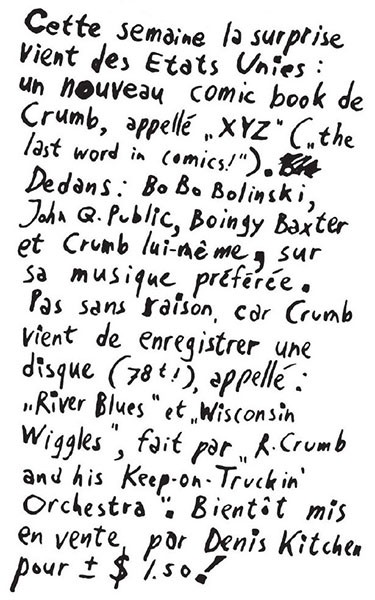 Cette semaine la surprise
vient des Etats Unies :
un nouveau comic book de
Crumb, appellé „XYZ" („the
last word in comics!").
Dedans: Bo Bo Bolinski,
John Q. Public, Boingy Baxter
et Crumb lui-même, sur
sa musique préférée.
Pas sans raison, car Crumb
vient de enregistrer une
disque (78t!), appellé :
„River Blues" et „Wisconsin
Wiggles", fait par „R. Crumb
and his Keep-on-Truckin'
Orchestra". Bientôt mis
en vente, par Denis Kitchen
pour ± $ 1.50!